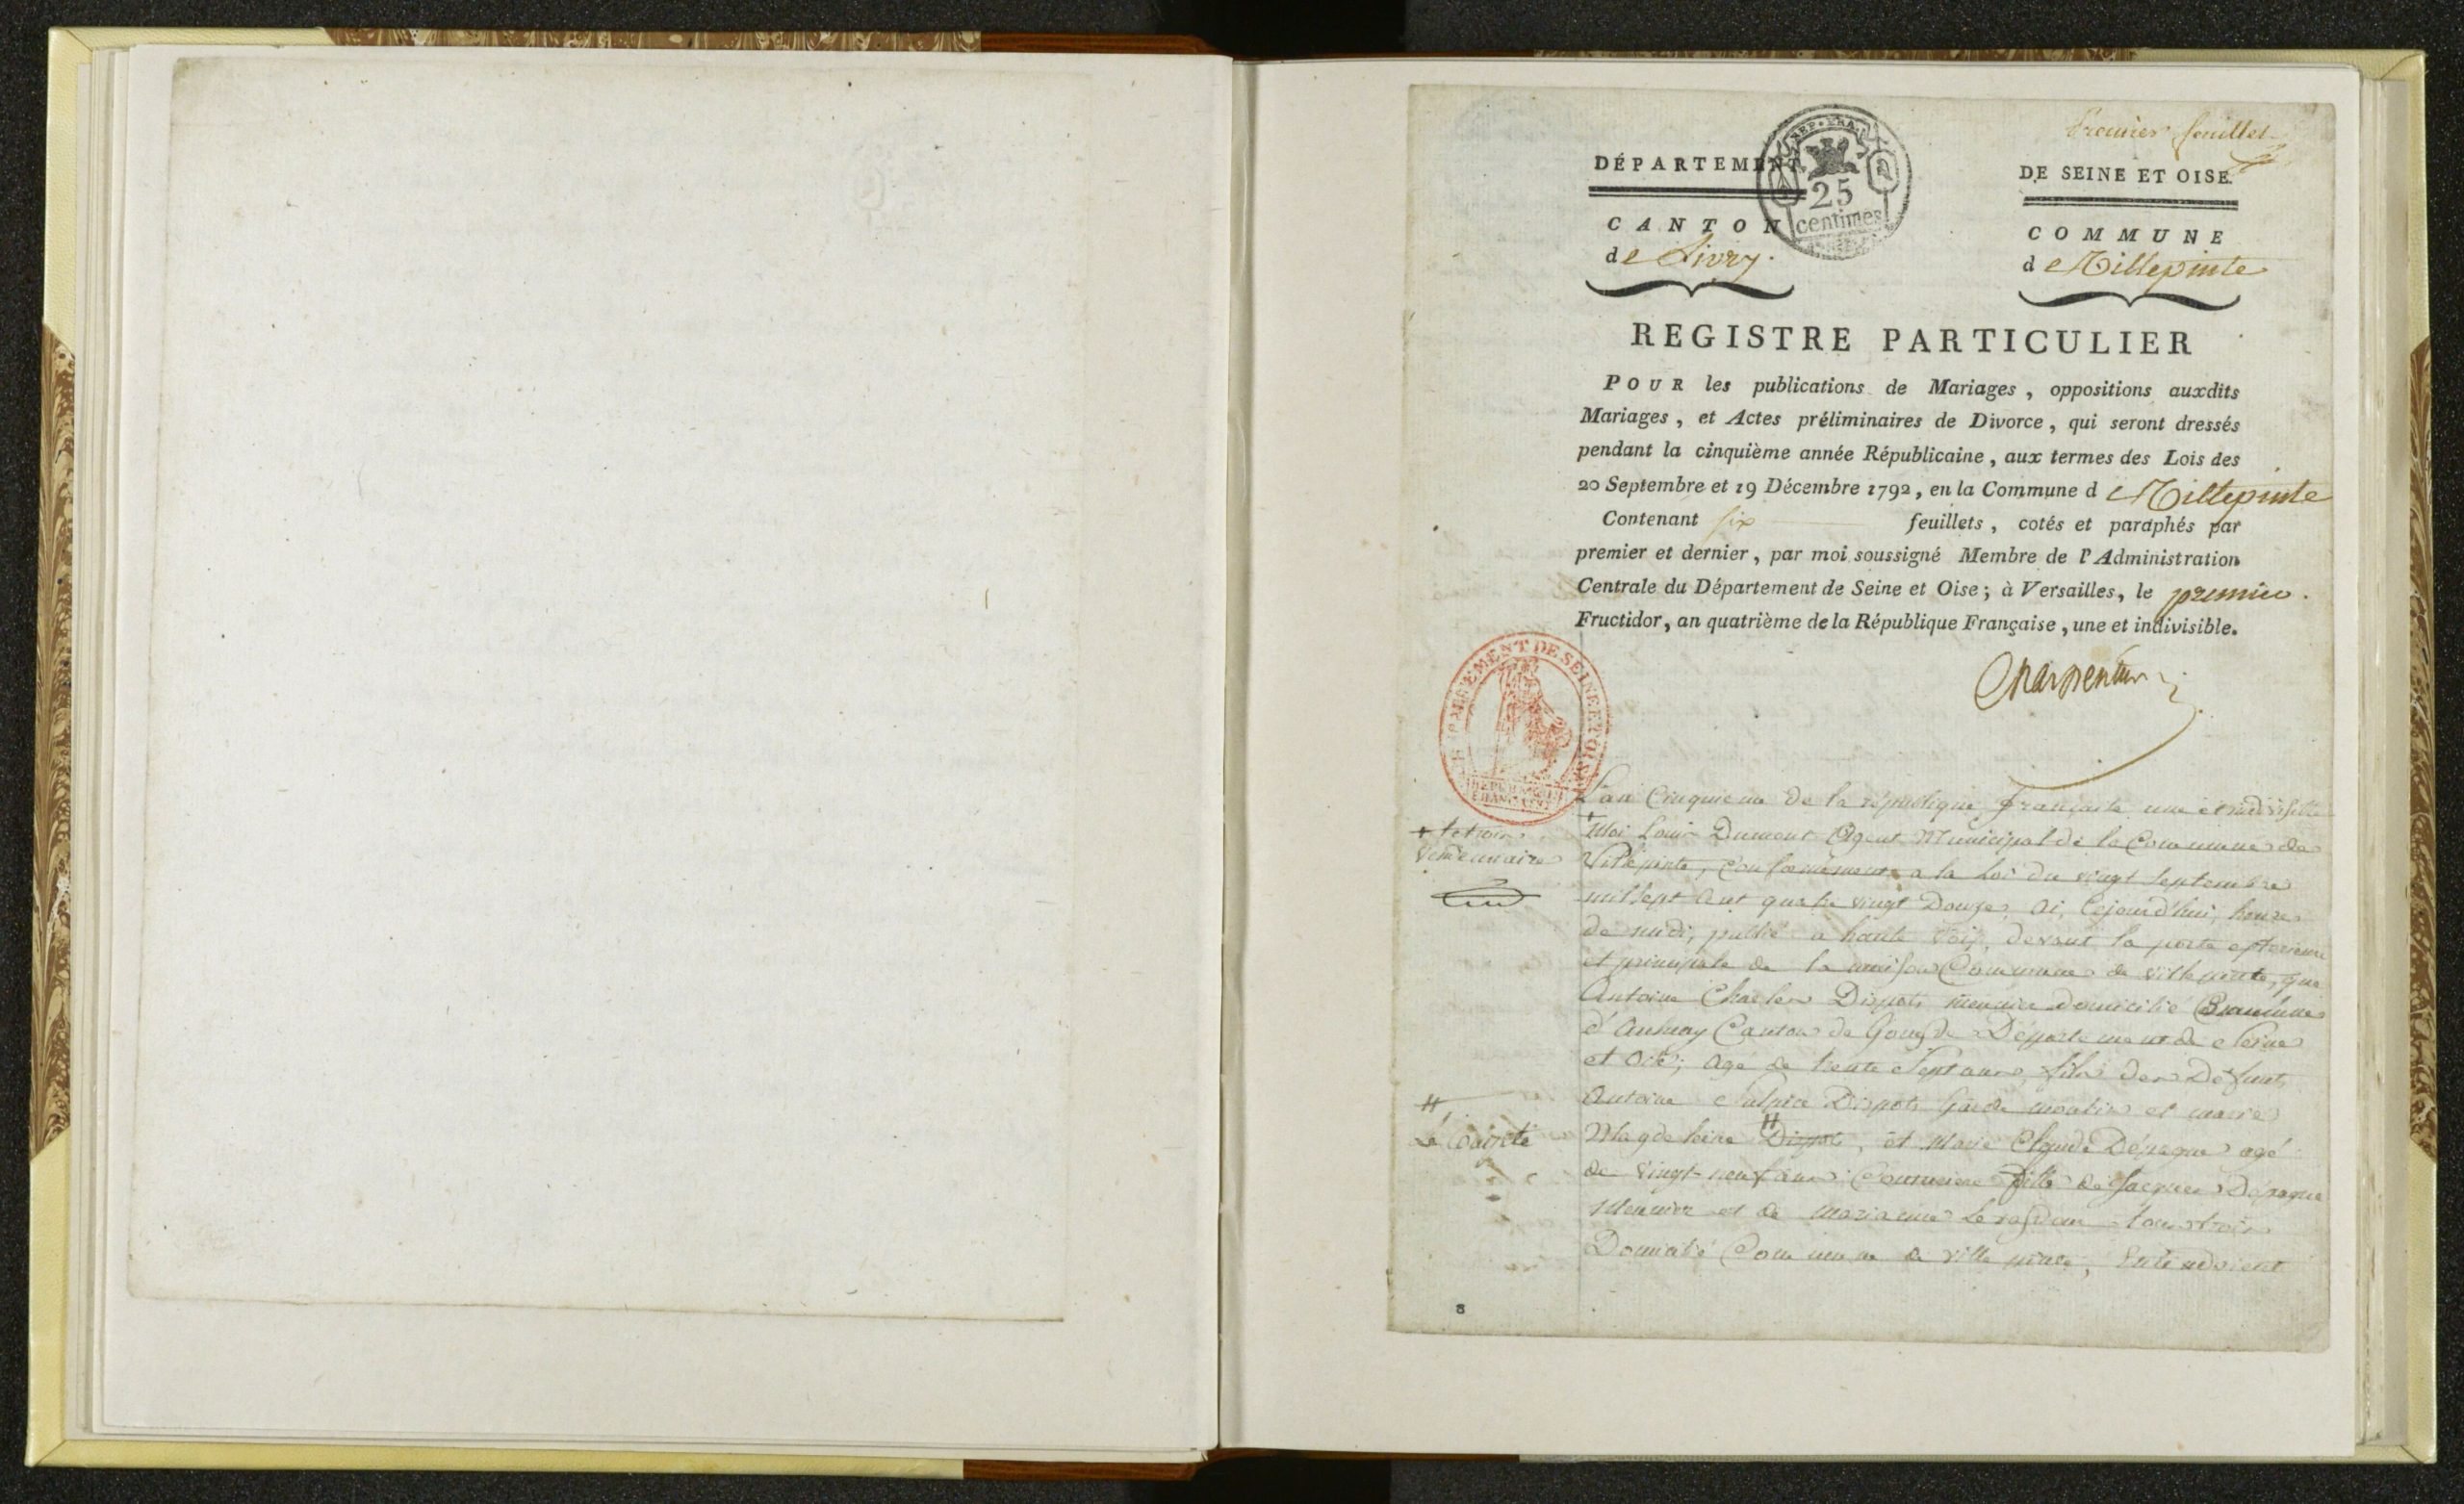 Premier feuillet
REP. FRA.
25
centimes
DÉPARTEMENT
DE SEINE ET OISE
CANTON
de Livry.
COMMUNE
de Villepinte
REGISTRE PARTICULIER
POUR les publications de Mariages, oppositions auxdits
Mariages, et Actes préliminaires de Divorce, qui seront dressés
pendant la cinquième année Républicaine, aux termes des Lois des
20 Septembre et 19 Décembre 1792, en la Commune de Villepinte
Contenant six feuillets, cotés et paraphés par
premier et dernier, par moi soussigné Membre de l'Administration
Centrale du Département de Seine et Oise; à Versailles, le premier.
Fructidor, an quatrième de la République Française, une et indivisible.
Charpentier
DÉPARTEMENT DE SEINE ET OISE
RÉPUBLIQUE
FRANÇAISE
L'an Cinquieme de la république française une et indivisible
+ le trois
Vendemiaire
Moi Louis Dumont Agent Municipal de la Commune de
Villepinte, Conformément a la Loi du vingt Septembre
mil sept cent quatre vingt Douze, ai, Cejourd'hui, heure
de midi, publié a haute voix, devant la porte exterieure
et principale de la maison Commune de villepinte, que
Antoine Charles Dispots meunier domicilié Commune
d'Aulnay Canton de Gonesse Département de Seine
et Oise; agé de trente Sept ans, fils des Défunts
Antoine Sulpice Dispots Garde moulin et marie
H
Magdeleine Dispots, et Marie Claude Dépaque agé
de vingt-neuf ans Couturiere fille de Jacques Dépaque
Meunier et de marianne tous trois
Domicilié Commune de ville pinte, Entendoient
8